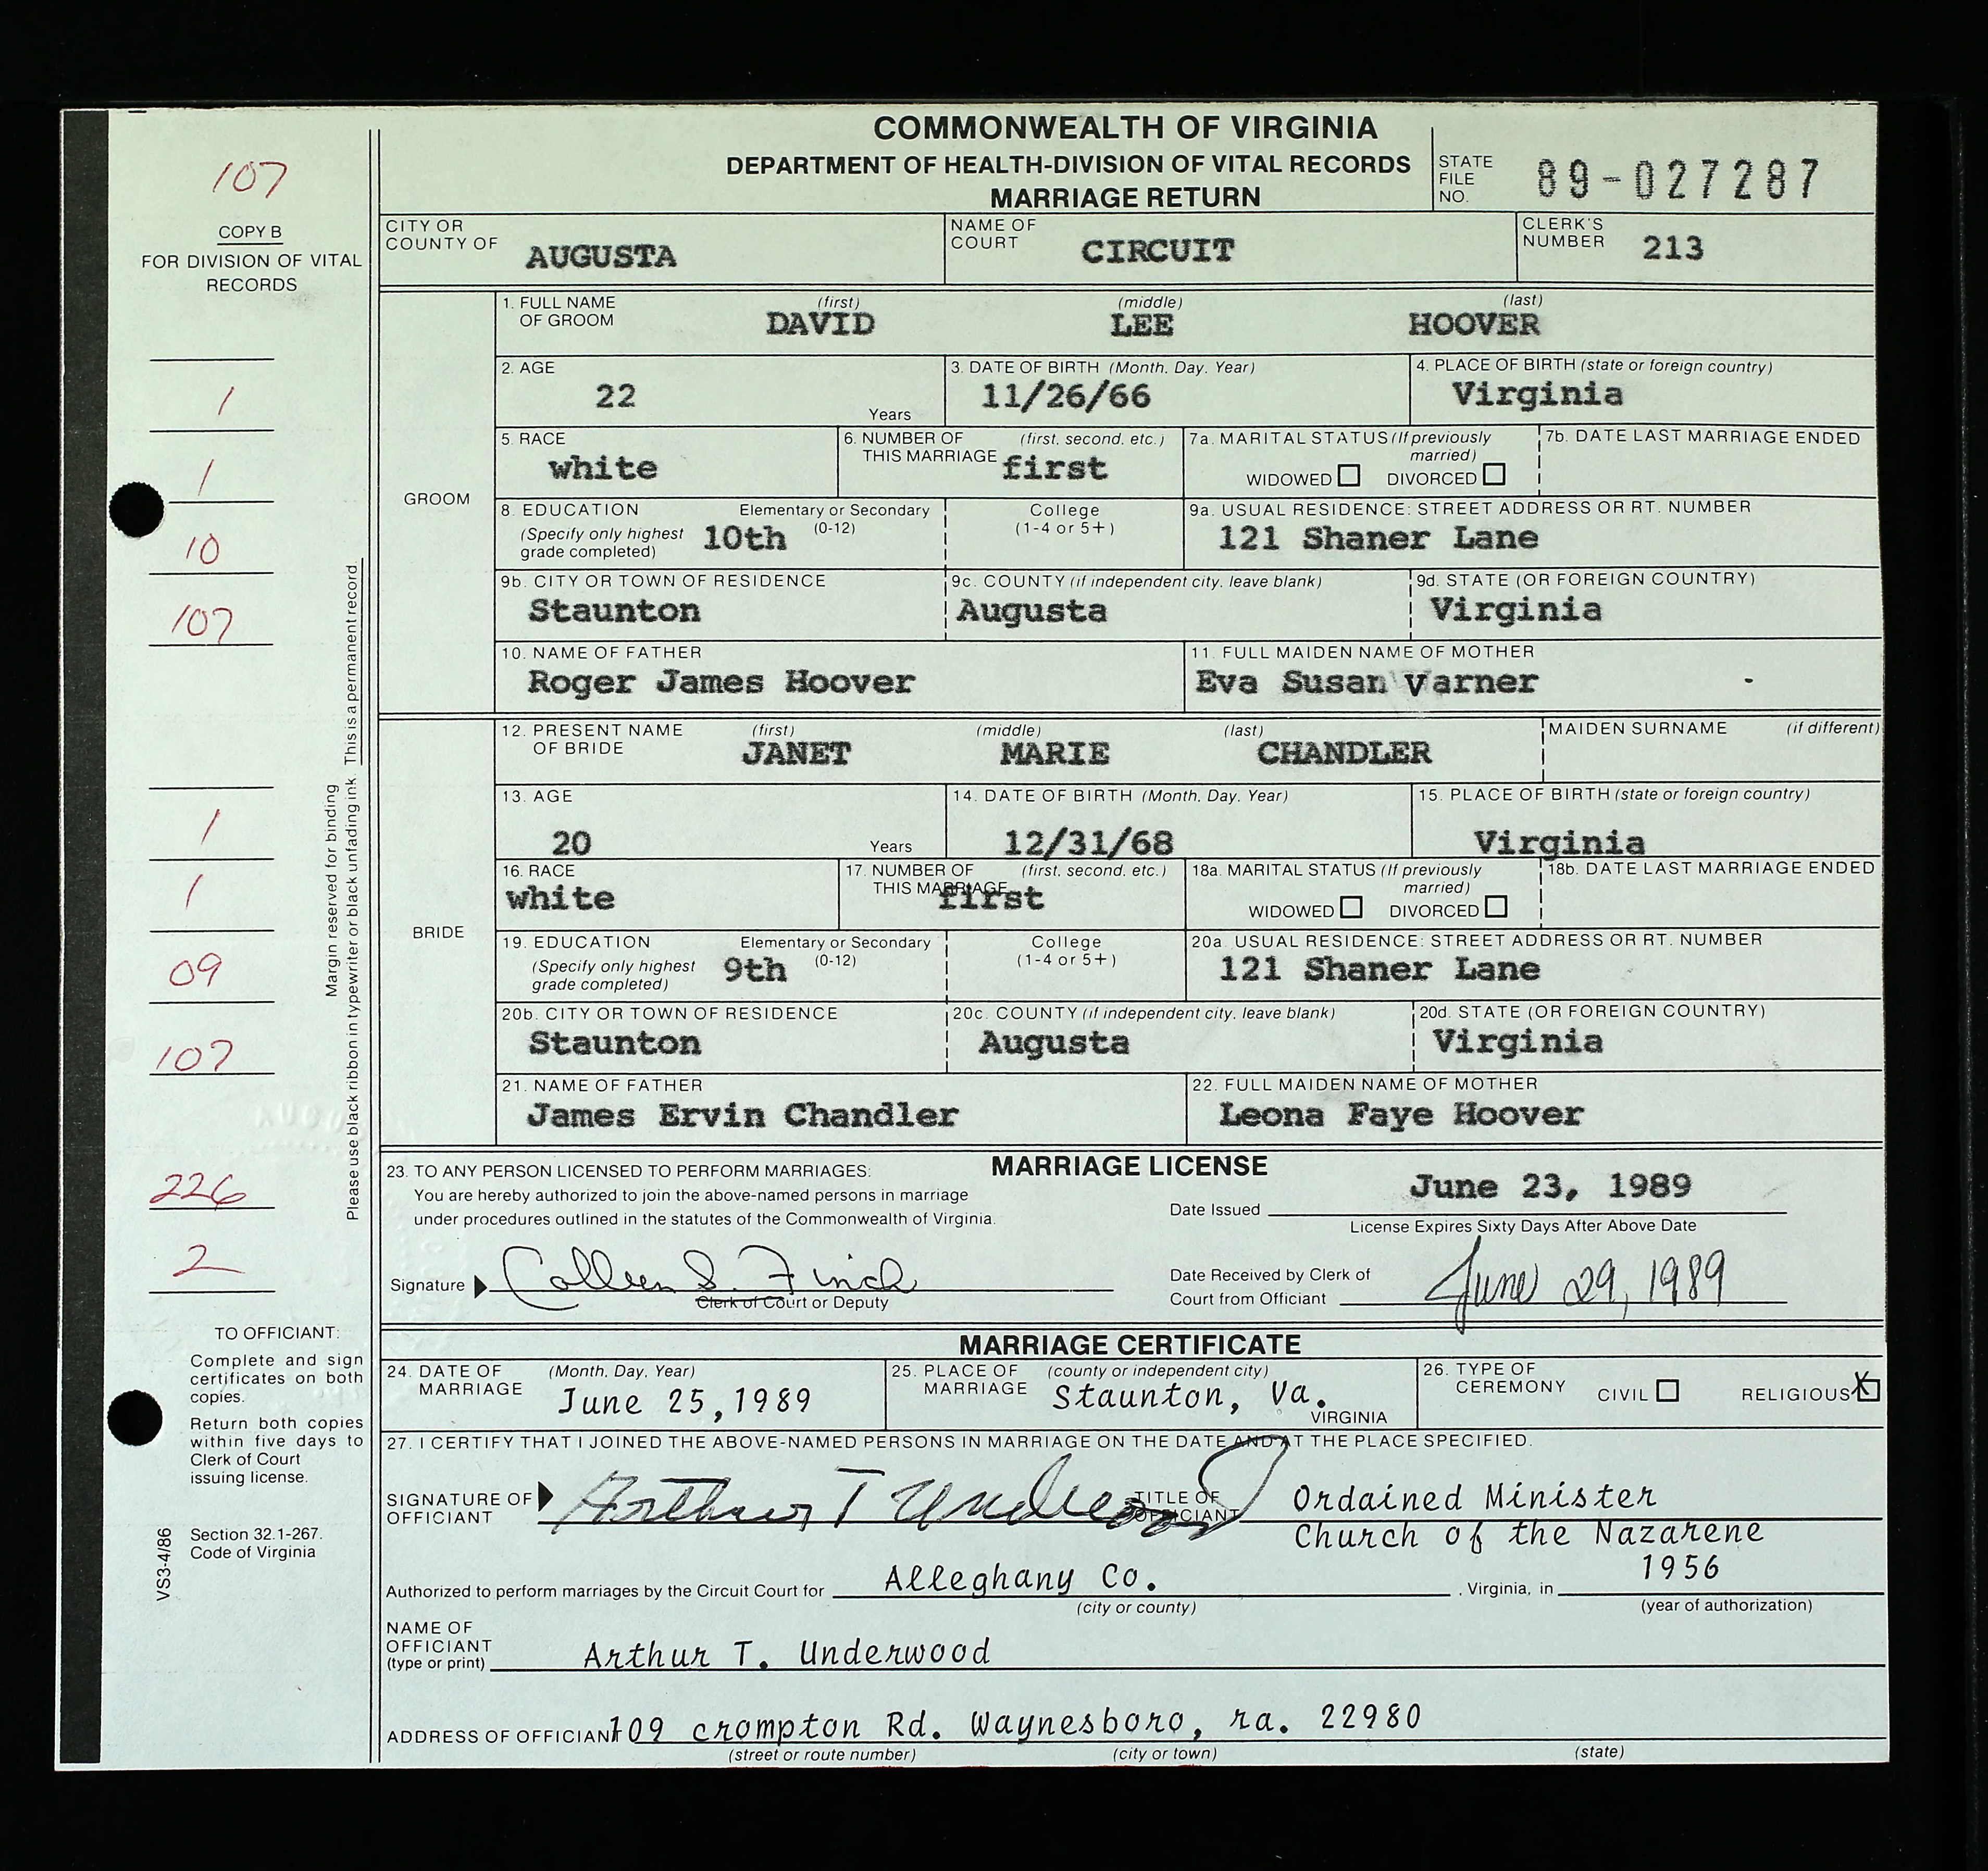 COMMONWEALTH OF VIRGINIA
DEPARTMENT OF HEALTH-DIVISION OF VITAL RECORDS
MARRIAGE RETURN
STATE FILE NO. 89-027287
107
COPY B
FOR DIVISION OF VITAL
RECORDS
CITY OR COUNTY OF AUGUSTA
NAME OF COURT CIRCUIT
CLERK'S NUMBER 213
GROOM
1. FULL NAME OF GROOM (first) DAVID (middle) LEE (last) HOOVER
2. AGE 22 Years
3. DATE OF BIRTH (Month, Day, Year) 11/26/66
4. PLACE OF BIRTH (state or foreign country) Virginia
5. RACE white
6. NUMBER OF THIS MARRIAGE (first, second, etc.) first
7a. MARITAL STATUS (If previously married) WIDOWED DIVORCED
7b. DATE LAST MARRIAGE ENDED
8. EDUCATION (Specify only highest grade completed) Elementary or Secondary (0-12) 10th College (1-4 or 5+)
9a. USUAL RESIDENCE: STREET ADDRESS OR RT. NUMBER 121 Shaner Lane
9b. CITY OR TOWN OF RESIDENCE Staunton
9c. COUNTY (if independent city, leave blank) Augusta
9d. STATE (OR FOREIGN COUNTRY) Virginia
10. NAME OF FATHER Roger James Hoover
11. FULL MAIDEN NAME OF MOTHER Eva Susan Varner
BRIDE
12. PRESENT NAME OF BRIDE (first) JANET (middle) MARIE (last) CHANDLER
MAIDEN SURNAME (if different)
13. AGE 20 Years
14. DATE OF BIRTH (Month, Day, Year) 12/31/68
15. PLACE OF BIRTH (state or foreign country) Virginia
16. RACE white
17. NUMBER OF THIS MARRIAGE (first, second, etc.) first
18a. MARITAL STATUS (If previously married) WIDOWED DIVORCED
18b. DATE LAST MARRIAGE ENDED
19. EDUCATION (Specify only highest grade completed) Elementary or Secondary (0-12) 9th College (1-4 or 5+)
20a. USUAL RESIDENCE: STREET ADDRESS OR RT. NUMBER 121 Shaner Lane
20b. CITY OR TOWN OF RESIDENCE Staunton
20c. COUNTY (if independent city, leave blank) Augusta
20d. STATE (OR FOREIGN COUNTRY) Virginia
21. NAME OF FATHER James Ervin Chandler
22. FULL MAIDEN NAME OF MOTHER Leona Faye Hoover
MARRIAGE LICENSE
23. TO ANY PERSON LICENSED TO PERFORM MARRIAGES:
You are hereby authorized to join the above-named persons in marriage
under procedures outlined in the statutes of the Commonwealth of Virginia.
Date Issued June 23, 1989
License Expires Sixty Days After Above Date
Signature Colleen S. Finch
Clerk of Court or Deputy
Date Received by Clerk of Court from Officiant June 29, 1989
MARRIAGE CERTIFICATE
24. DATE OF MARRIAGE (Month, Day, Year) June 25, 1989
25. PLACE OF MARRIAGE (county or independent city) Staunton, Va. VIRGINIA
26. TYPE OF CEREMONY CIVIL RELIGIOUS X
27. I CERTIFY THAT I JOINED THE ABOVE-NAMED PERSONS IN MARRIAGE ON THE DATE AND AT THE PLACE SPECIFIED.
SIGNATURE OF OFFICIANT Arthur T Underwood
TITLE OF OFFICIANT Ordained Minister
Church of the Nazarene
Authorized to perform marriages by the Circuit Court for Alleghany Co. , Virginia, in 1956
(city or county)
(year of authorization)
NAME OF OFFICIANT (type or print) Arthur T. Underwood
ADDRESS OF OFFICIANT 109 crompton Rd. Waynesboro, ra. 22980
(street or route number) (city or town) (state)
1
1
10
107
1
1
09
107
226
2
Margin reserved for binding
Please use black ribbon in typewriter or black unfading ink. This is a permanent record.
TO OFFICIANT:
Complete and sign
certificates on both
copies.
Return both copies
within five days to
Clerk of Court
issuing license.
Section 32.1-267.
Code of Virginia
VS3-4/86